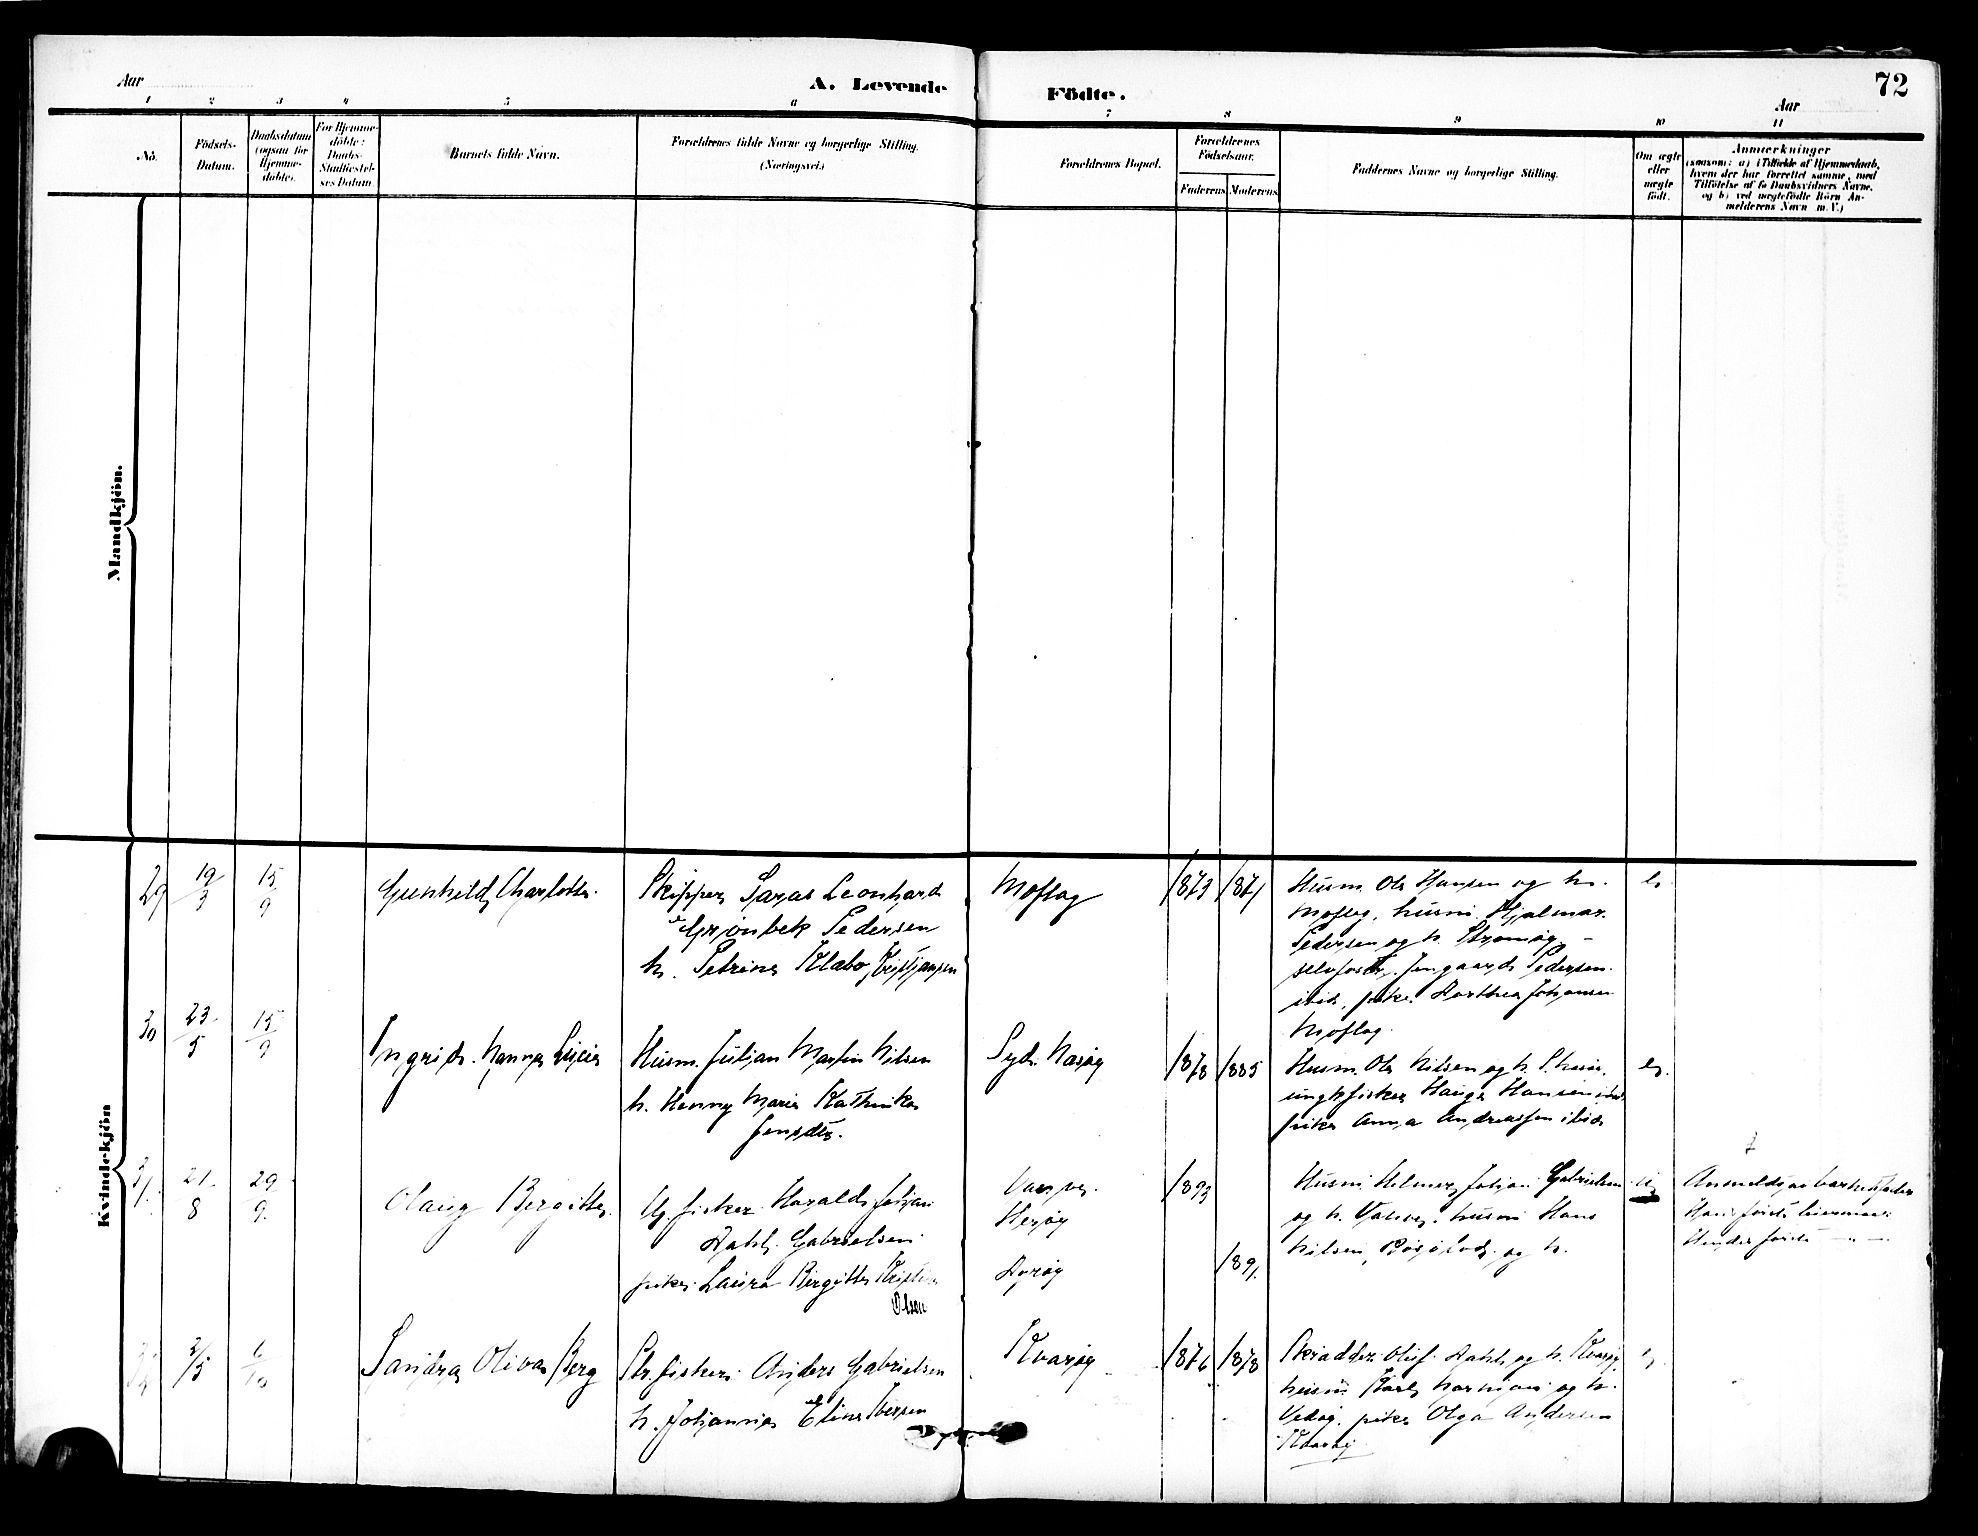 72
Aar
A. Levende Födte.
Aar
1 2 3 4 5 6 7 8 9 10 11
No.
Födsels-
Datum.
Daabsdatum
(ogsaa for
Hjemme-
döbte).
For Hjemme-
döbte:
Daabs-
Stadfæstel-
ses Datum.
Barnets fulde Navn.
Forældrenes fulde Navne og borgerlige Stilling.
(Næringsvei.)
Forældrenes Bopæl.
Forældrenes
Födselsaar.
Faderens Moderens
Faddernes Navne og borgerlige Stilling.
Om ægte
eller
uægte
född.
Anmærkninger
(saasom: a) i Tilfælde af Hjemmedaab,
hvem der har forrettet samme, med
Tilföielse af to Daabsvidners Navne,
og b) ved uægtefödte Börn An-
melderens Navn m. V.)
Mandkjön.
Kvindekjön
29 19/3 15/9 Gunhild Charlotte.
Skipper Saras Leonhard
Grönbek Pedersen
h. Petrine Klabo Kristjansen
Moflag 1873 1871
Husm. Ole Hansen og h.
Moflag, husm. Hjalmar
Pedersen og h.
Pedersen
ibid, pike Dorthea Johansen
Moflag.
30 23/5 15/9 Ingrid Hanna
Husm. Julian Martin Nilsen
h. Henny Marie Kathinka
Jensdtr.
Syd. 1878 1885
Husm. Ole Nilsen og h.
ungk fisker Hauge Hansen ibid
pike Anna Andreassen ibid
31. 21/8 29/9. Olaug Bergitte.
Ug. fisker Harald Johan
Dahl Gabrielsen.
pike Laura Birgitte
Olsen
Heröy
1893
1891.
Husm. Helmer Johan Gabrielsen
og h. husm Hans
Nilsen, og h.
Anmeldt av barnets fader
2/5 6/10 Sandra Oliva Berg
Str. fisker Anders Gabrielsen
h. Johanna Eline Iversen
Kvaröy 1876 1878
Skrædder Oluf Dahl og h. Kvaröy
husm Karl og h.
pike Olga Andersen
Kvaröy